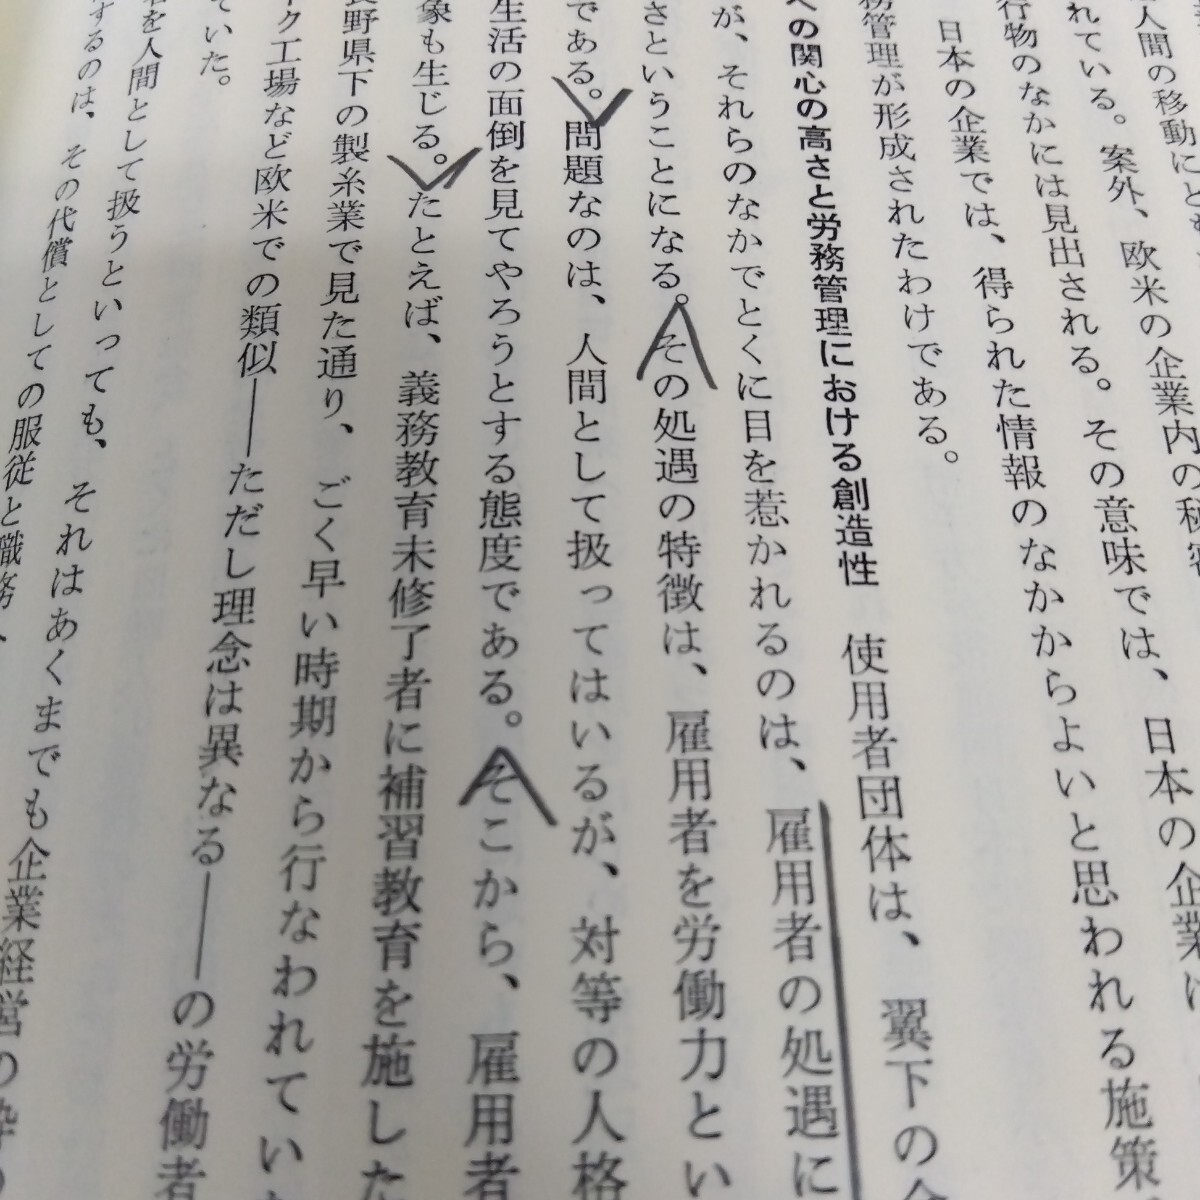 人間の移動にとも
れている。案外、欧米の企業内の
行物のなかには見出される。その意味では、日本の企業は
日本の企業では、得られた情報のなかからよいと思われる施策
務管理が形成されたわけである。
への関心の高さと労務管理における創造性 使用者団体は、翼下の
が、それらのなかでとくに目を惹かれるのは、雇用者の処遇に
さということになる。その処遇の特徴は、雇用者を労働力とい
である。問題なのは、人間として扱ってはいるが、対等の人格
生活の面倒を見てやろうとする態度である。そこから、雇用者
象も生じる。たとえば、義務教育未修了者に補習教育を施した
長野県下の製糸業で見た通り、ごく早い時期から行なわれてい
ク工場など欧米での類似――ただし理念は異なる――の労働者
ていた。
を人間として扱うといっても、それはあくまでも企業経営の枠
するのは、その代償としての服従と職務